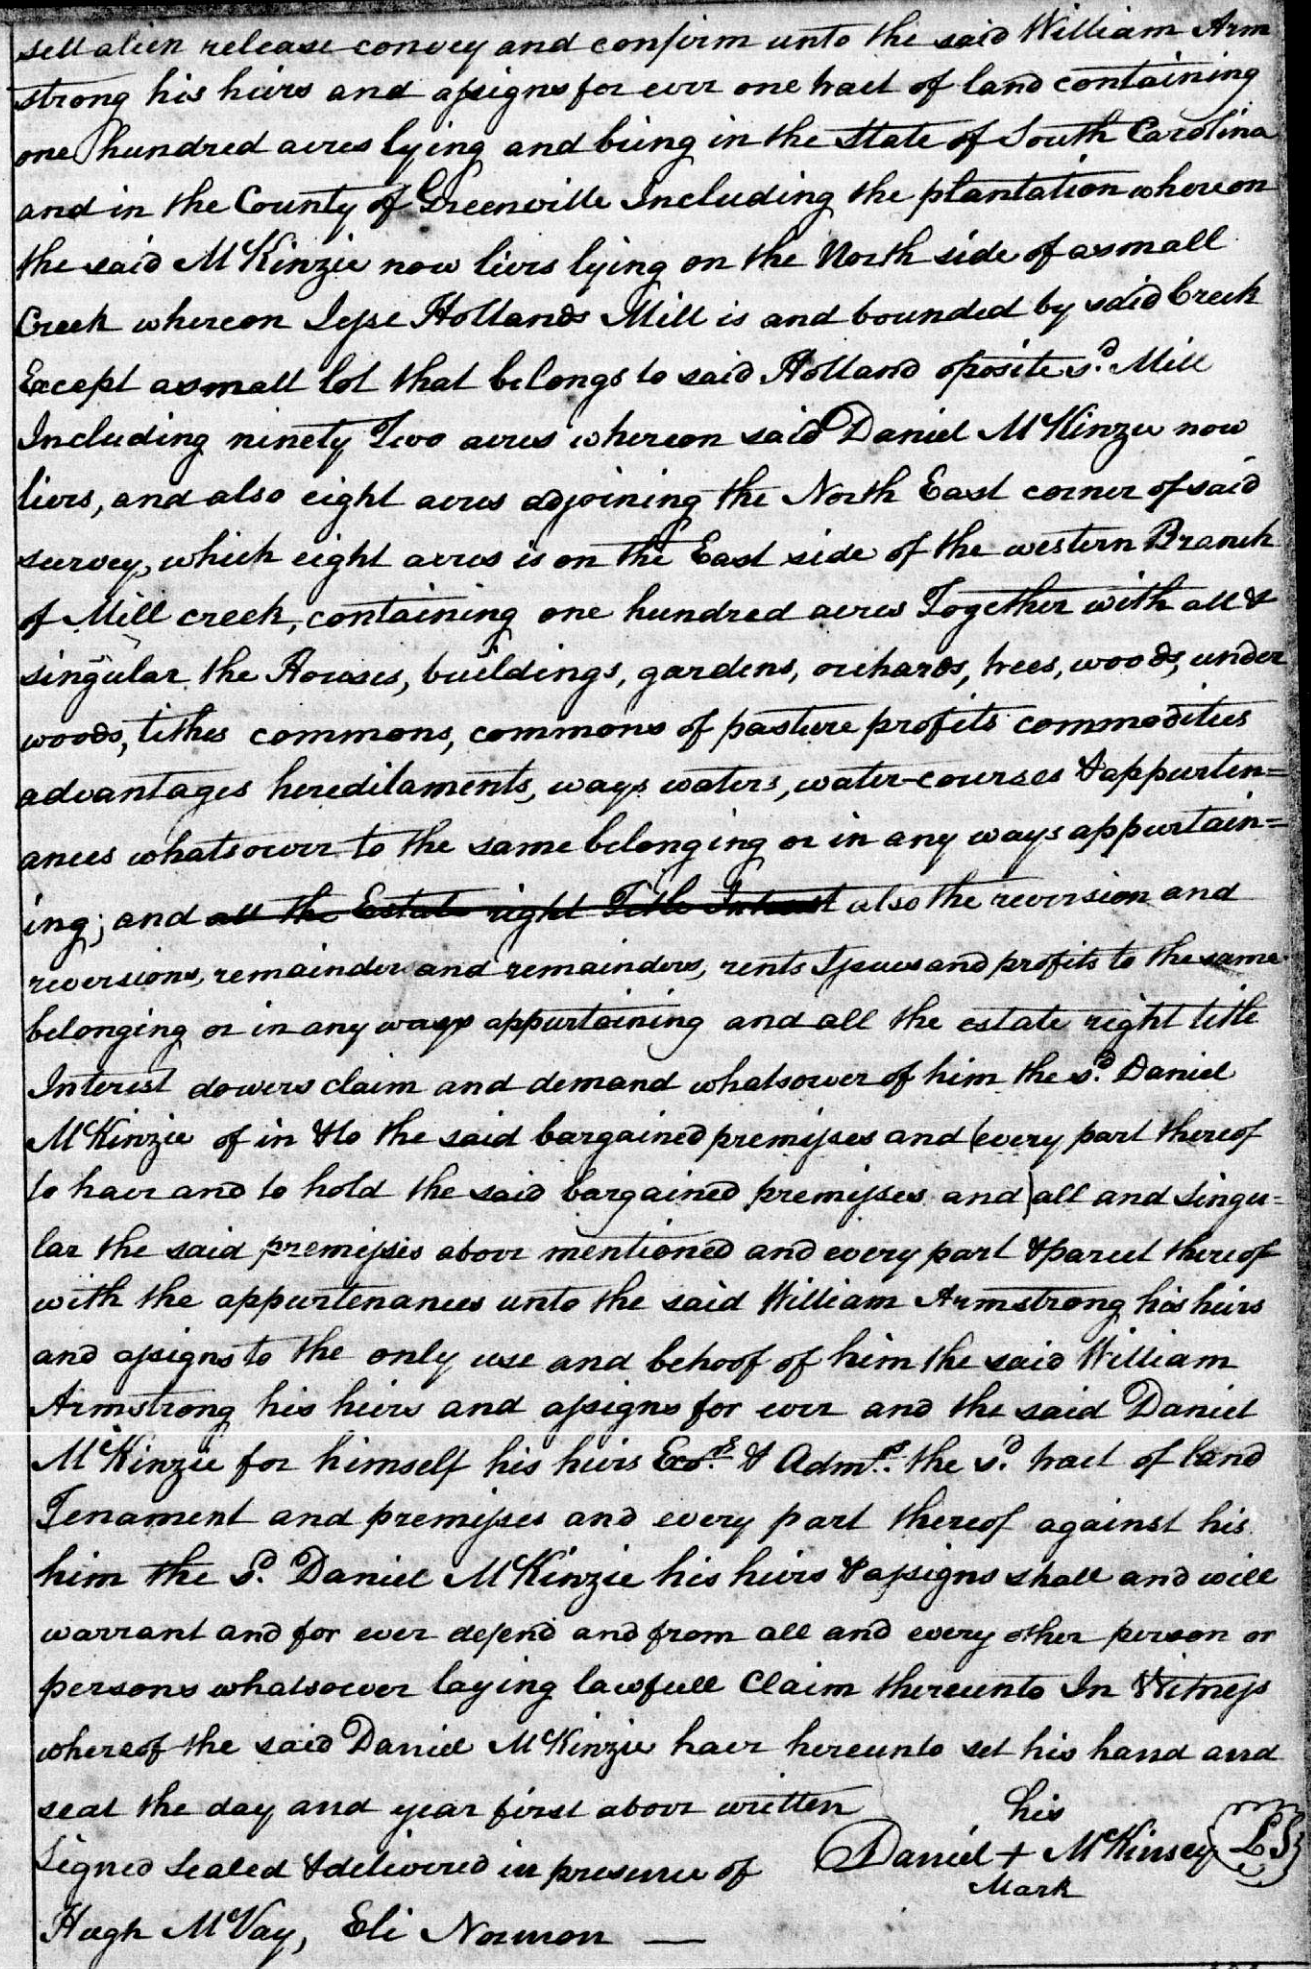 sell alien release convey and confirm unto the said William Arm
strong his heirs and assigns for ever one tract of land containing
one hundred acres lying and being in the State of South Carolina
and in the County of Greenville Including the plantation whereon
the said McKinzie now lives lying on the North side of a small
Creek whereon Jesse Hollands Mill is and bounded by said Creek
Except a small lot that belongs to said Holland oposite sd. Mill
Including ninety Two acres whereon said Daniel McKinzie now
lives, and also eight acres adjoining the North East corner of said
survey, which eight acres is on the East side of the western Branch
of Mill creek, containing one hundred acres Together with all &
singular the Houses, buildings, gardens, orchards, trees, woods, under
woods, tithes commons, commons of pasture profits commodities
advantages hereditaments, ways waters, water-courses & appurten=
ances whatsoever to the same belonging or in any ways appurtain=
ing; and all the Estate right Title Interest also the reversion and
reversions, remainder and remainders, rents Issues and profits to the same
belonging or in any ways appurtaining and all the estate right title
Interest dowers claim and demand whatsoever of him the sd. Daniel
McKinzie of in & to the said bargained premisses and (every part thereof
to have and to hold the said bargained premisses and) all and singu=
lar the said premisses above mentioned and every part & parcel thereof
with the appurtenances unto the said William Armstrong his heirs
and assigns to the only use and behoof of him the said William
Armstrong his heirs and assigns for ever and the said Daniel
McKinzie for himself his heirs Exors. & Admrs. the sd. tract of land
Tenament and premisses and every part thereof against his
him the sd. Daniel McKinzie his heirs & assigns shall and will
warrant and for ever defend and from all and every other person or
persons whatsoever laying lawfull Claim thereunto In Witness
whereof the said Daniel McKinzie have hereunto set his hand and
seal the day and year first above written
his
Signed Sealed & delivered in presence of Daniel + McKinsey LS
Mark
Hugh McVay, Eli Norman —